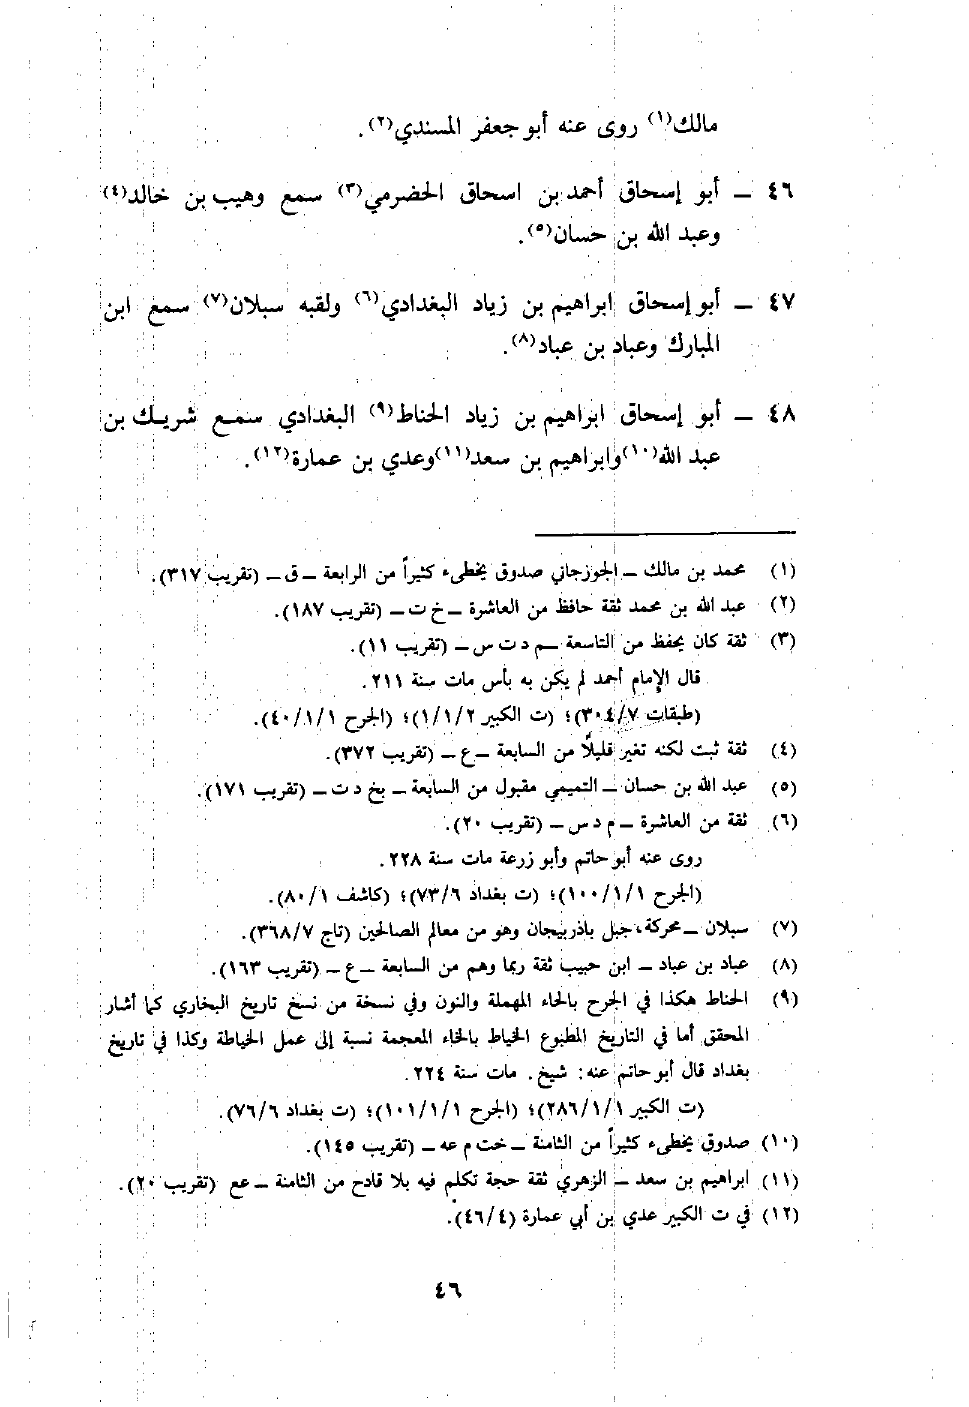 مالك(١) روى عنه أبو جعفر المسندي(٢).
٤٦ ــ أبو إسحاق أحمد بن اسحاق الحضرمي(٣) سمع وهيب بن خالد(٤)
وعبد الله بن حسان(٥).
٤٧ ــ أبو إسحاق ابراهيم بن زياد البغدادي(٦) ولقبه سبلان(٧) سمع ابن
المبارك وعباد بن عباد(٨).
٤٨ ــ أبو إسحاق ابراهيم بن زياد الحناط(٩) البغدادي سمع شريك بن
عبد الله(١٠) وابراهيم بن سعد(١١) وعدي بن عمارة(١٢).
(١) محمد بن مالك ــ الجوزجاني صدوق يخطىء كثيراً من الرابعة ــ ق ــ (تقريب ٣١٧).
(٢) عبد الله بن محمد ثقة حافظ من العاشرة ــ خ ت ــ (تقريب ١٨٧).
(٣) ثقة كان يحفظ من التاسعة ــ م د ت س ــ (تقريب ١١).
قال الإمام أحمد لم يكن به بأس مات سنة ٢١١.
(طبقات ٣٠٤/٧)؛ (ت الكبير ١/١/٢)؛ (الجرح ٤٠/١/١).
(٤) ثقة ثبت لكنه تغير قليلاً من السابعة ــ ع ــ (تقريب ٣٧٢).
(٥) عبد الله بن حسان ــ التميمي مقبول من السابعة ــ بخ د ت ــ (تقريب ١٧١).
(٦) ثقة من العاشرة ــ م د س ــ (تقريب ٢٠).
روى عنه أبو حاتم وأبو زرعة مات سنة ٢٢٨.
(الجرح ١٠٠/١/١)؛ (ت بغداد ٧٣/٦)؛ (كاشف ٨٠/١).
(٧) سبلان ــ محركة، جبل باذربيجان وهو من معالم الصالحين (تاج ٣٦٨/٧).
(٨) عباد بن عباد ــ ابن حبيب ثقة ربما وهم من السابعة ــ ع ــ (تقريب ١٦٣).
(٩) الحناط هكذا في الجرح بالحاء المهملة والنون وفي نسخة من نسخ تاريخ البخاري كما أشار
المحقق أما في التاريخ المطبوع الخياط بالخاء المعجمة نسبة إلى عمل الخياطة وكذا في تاريخ
بغداد قال أبو حاتم عنه: شيخ. مات سنة ٢٢٤.
(ت الكبير ٢٨٦/١/١)؛ (الجرح ١٠١/١/١)؛ (ت بغداد ٧٦/٦).
(١٠) صدوق يخطىء كثيراً من الثامنة ــ خت م عه ــ (تقريب ١٤٥).
(١١) ابراهيم بن سعد ــ الزهري ثقة حجة تكلم فيه بلا قادح من الثامنة ــ عع (تقريب ٢٠).
(١٢) في ت الكبير عدي بن أبي عمارة (٤٦/٤).
٤٦